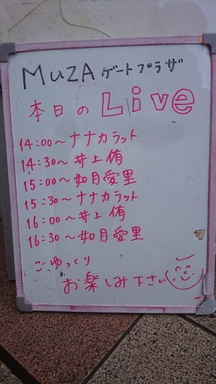 MUZA ゲートプラザ
本日の Live
14:00〜ナナカラット
14:30〜井上侑
15:00〜如月愛里
15:30〜ナナカラット
16:00〜井上侑
16:30〜如月愛里
ごゆっくり
お楽しみ下さい